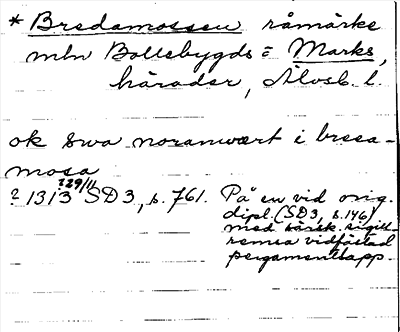 * Bredamossen råmärke
mln Bollebygds = Marks,
härader, Älvsb. l.
ok swa noranwært i breea-
mosa
? 29/11
? 1313 SD 3, s. 761. På en vid orig.
dipl. (SD3, s. 146)
med särsk. sigill-
remsa vidfästad
pergamentlapp.